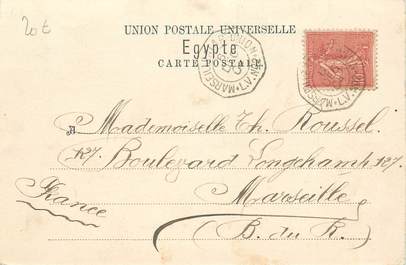 20€
UNION POSTALE UNIVERSELLE
Egypte
CARTE POSTALE
A Mademoiselle Th. Roussel
127. Boulevard Longchamp 127.
Marseille
France
(B. du R.)